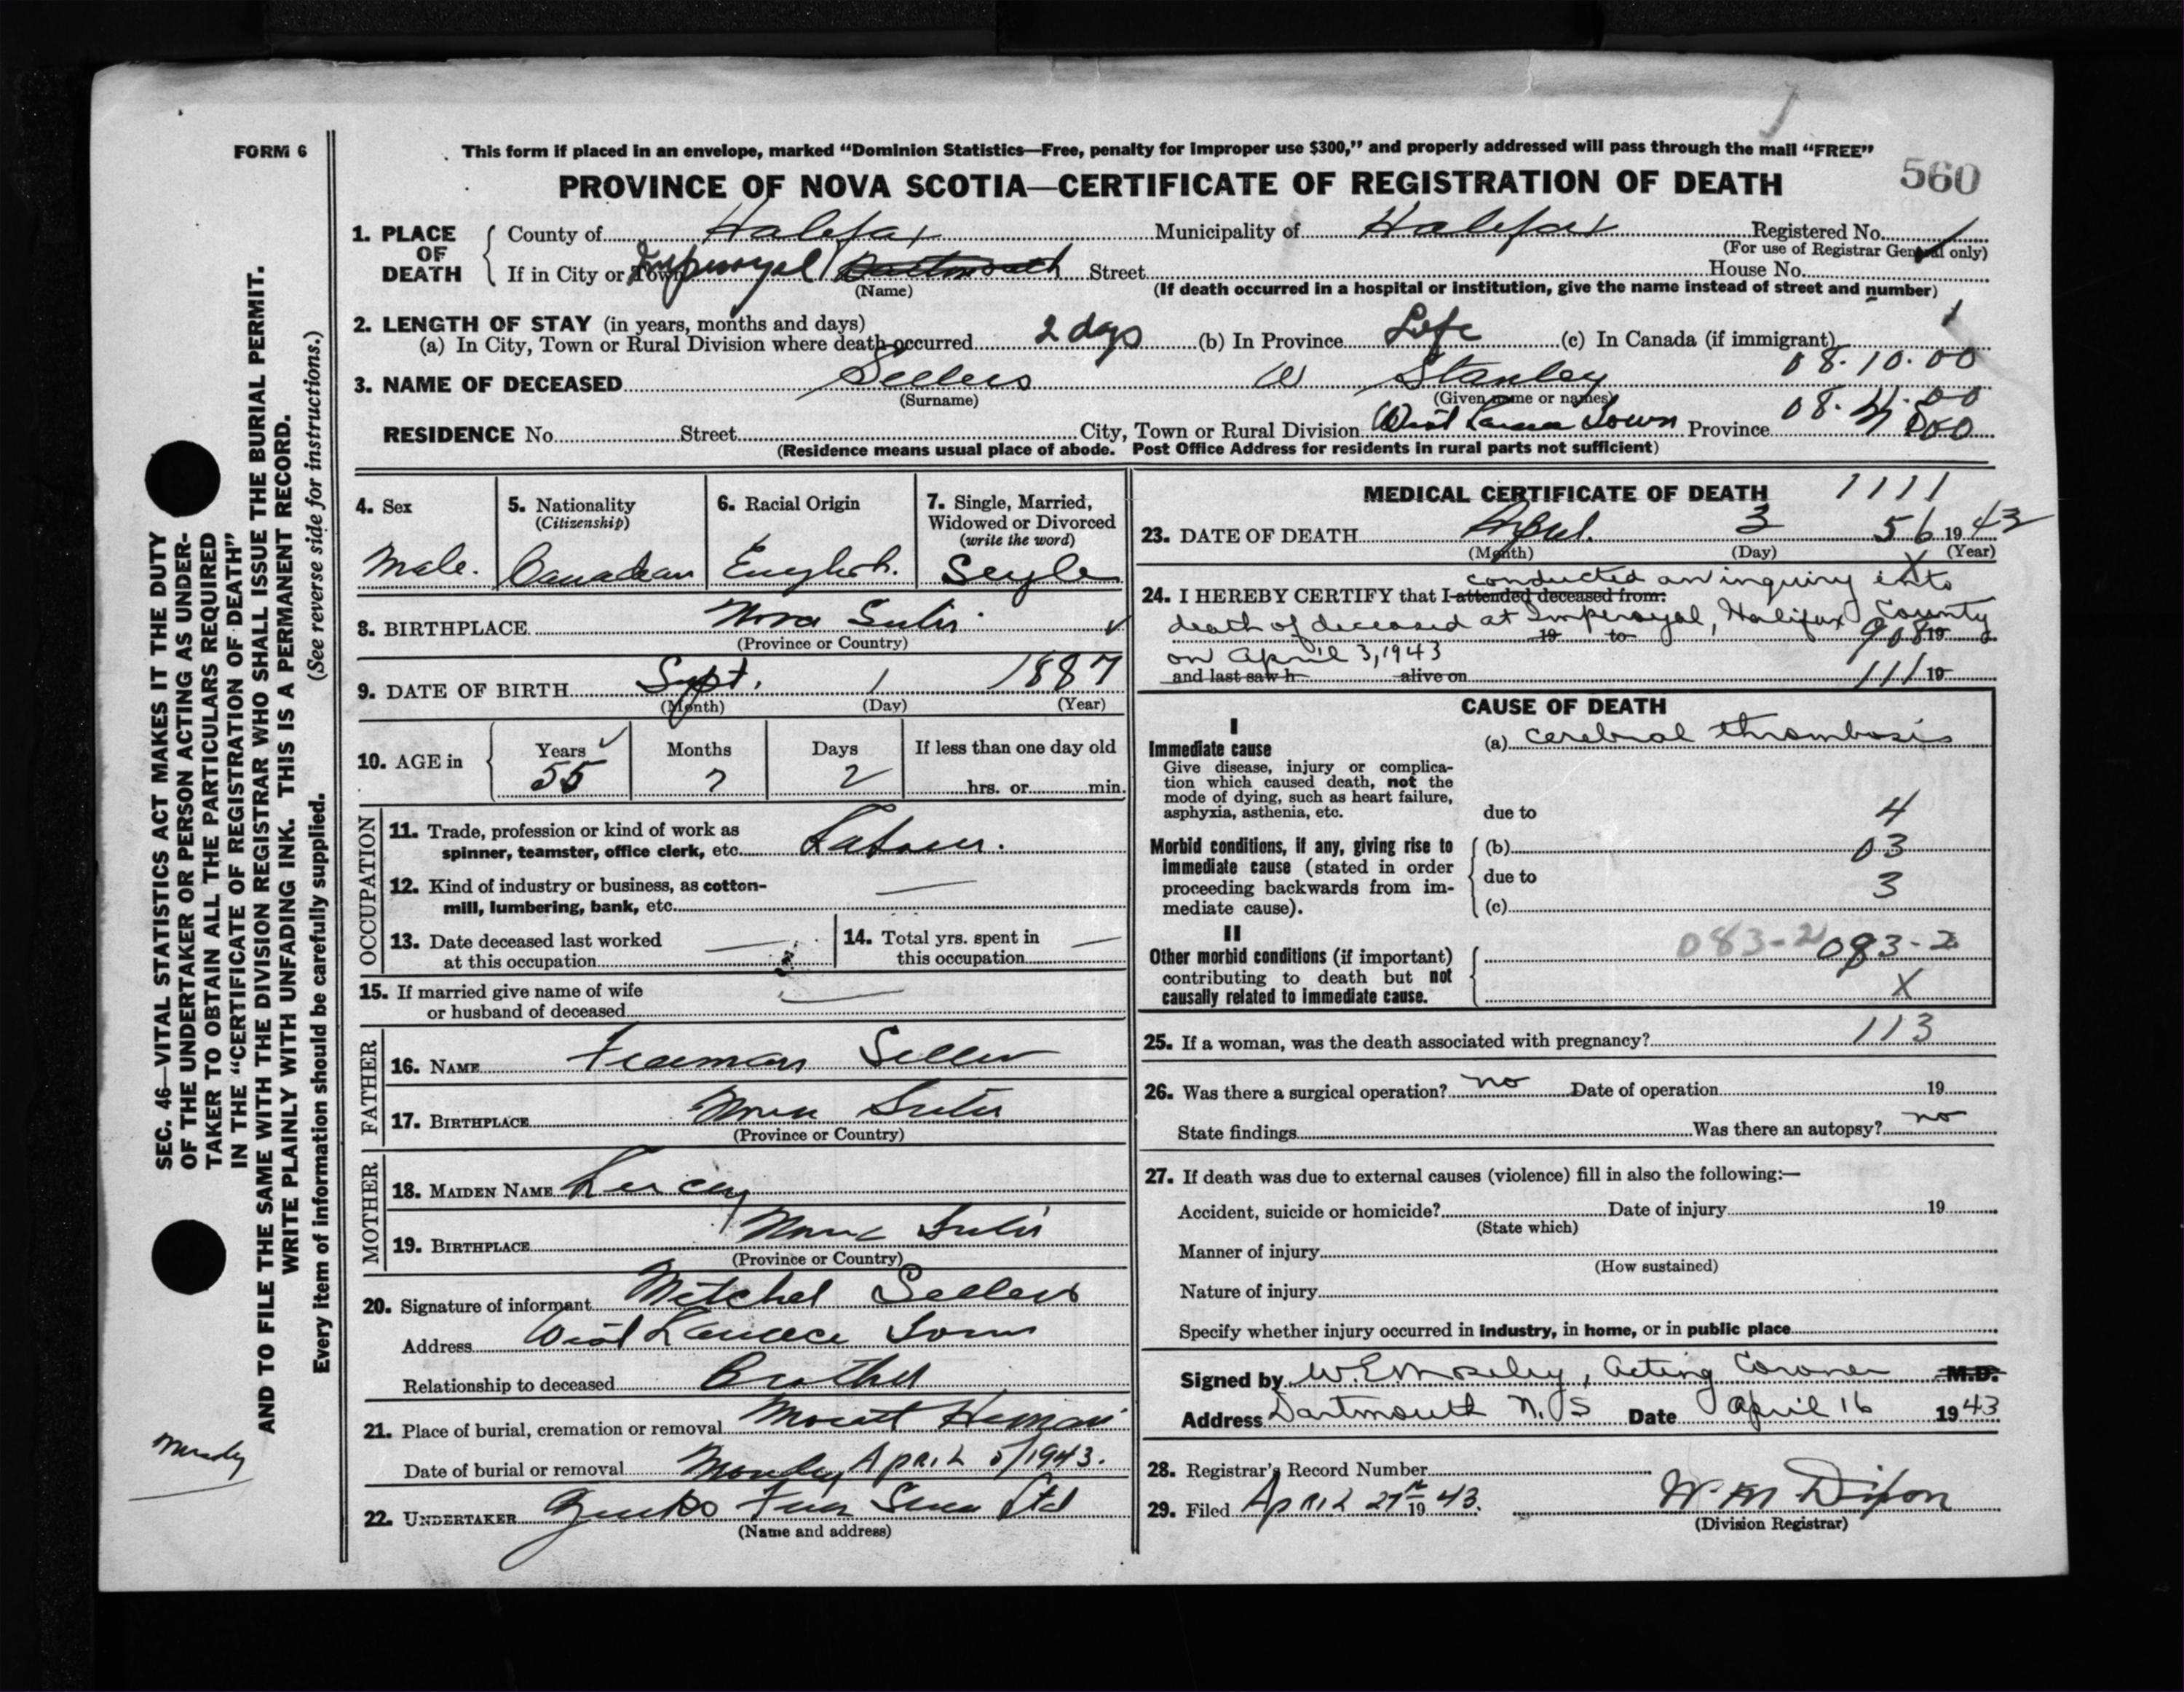 FORM 6
This form if placed in an envelope, marked “Dominion Statistics—Free, penalty for improper use $300,” and properly addressed will pass through the mail “FREE”
PROVINCE OF NOVA SCOTIA—CERTIFICATE OF REGISTRATION OF DEATH 560
1. PLACE OF DEATH
County of Halifax Municipality of Halifax Registered No.
(For use of Registrar General only)
If in City or Town Imperoyal Dartmouth Street House No.
(Name) (If death occurred in a hospital or institution, give the name instead of street and number)
2. LENGTH OF STAY (in years, months and days)
(a) In City, Town or Rural Division where death occurred 2 days (b) In Province Life (c) In Canada (if immigrant)
08.10.00
3. NAME OF DECEASED Sellers W Stanley
(Surname) (Given name or names)
08. 00
RESIDENCE No. Street City, Town or Rural Division Town Province
(Residence means usual place of abode. Post Office Address for residents in rural parts not sufficient)
4. Sex Male.
5. Nationality (Citizenship) Canadian
6. Racial Origin English.
7. Single, Married, Widowed or Divorced (write the word) Single
8. BIRTHPLACE Nova Scotia
(Province or Country)
9. DATE OF BIRTH Sept. 1 1887
(Month) (Day) (Year)
10. AGE in Years 55 Months 7 Days 2 If less than one day old
hrs. or min.
OCCUPATION
11. Trade, profession or kind of work as
spinner, teamster, office clerk, etc. Labourer.
12. Kind of industry or business, as cotton-
mill, lumbering, bank, etc. —
13. Date deceased last worked
at this occupation —
14. Total yrs. spent in
this occupation —
15. If married give name of wife
or husband of deceased —
FATHER
16. NAME Freeman Seller
17. BIRTHPLACE Nova Scotia
(Province or Country)
MOTHER
18. MAIDEN NAME Lucy
19. BIRTHPLACE Nova Scotia
(Province or Country)
20. Signature of informant Mitchel Sellers
Address Town
Relationship to deceased Brother
21. Place of burial, cremation or removal Mount Herman
Date of burial or removal Monday April 5/1943.
22. UNDERTAKER Ltd
(Name and address)
MEDICAL CERTIFICATE OF DEATH 1111
23. DATE OF DEATH April. 3 56 19 43
(Month) (Day) (Year)
X
24. I HEREBY CERTIFY that I attended deceased from: conducted an inquiry into
death of deceased at Imperoyal, Halifax County
19 to 908 19
on April 3, 1943
and last saw h alive on 111 19
CAUSE OF DEATH
I
Immediate cause
Give disease, injury or complica-
tion which caused death, not the
mode of dying, such as heart failure,
asphyxia, asthenia, etc.
(a) cerebral thrombosis
due to 4
Morbid conditions, if any, giving rise to
immediate cause (stated in order
proceeding backwards from im-
mediate cause).
(b) 03
due to 3
(c)
II
Other morbid conditions (if important)
contributing to death but not
causally related to immediate cause.
083-2 083-2
X
25. If a woman, was the death associated with pregnancy? 113
26. Was there a surgical operation? no Date of operation 19
State findings Was there an autopsy? no
27. If death was due to external causes (violence) fill in also the following:—
Accident, suicide or homicide? Date of injury 19
(State which)
Manner of injury
(How sustained)
Nature of injury
Specify whether injury occurred in industry, in home, or in public place
Signed by W.E. Moseley, Acting Coroner M.D.
Address Dartmouth N.S Date April 16 1943
28. Registrar's Record Number
29. Filed April 27th 19 43. W M Dixon
(Division Registrar)
SEC. 46—VITAL STATISTICS ACT MAKES IT THE DUTY
OF THE UNDERTAKER OR PERSON ACTING AS UNDER-
TAKER TO OBTAIN ALL THE PARTICULARS REQUIRED
IN THE “CERTIFICATE OF REGISTRATION OF DEATH”
AND TO FILE THE SAME WITH THE DIVISION REGISTRAR WHO SHALL ISSUE THE BURIAL PERMIT.
WRITE PLAINLY WITH UNFADING INK. THIS IS A PERMANENT RECORD.
Every item of information should be carefully supplied. (See reverse side for instructions.)